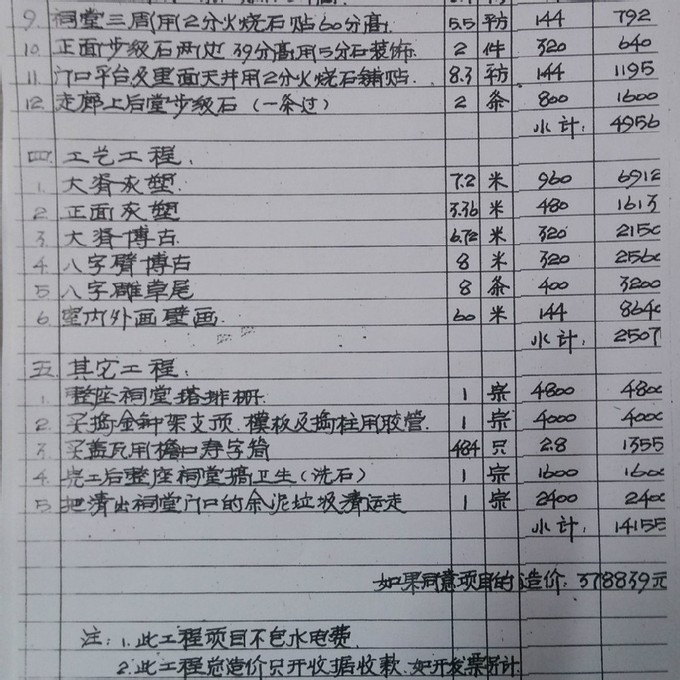 9. 祠堂三周用2分火烧石贴60分高 5.5 平方 144 792
10. 正面步级石两边39分高用5分石装饰 2 件 320 640
11. 门口平台及里面天井用2分火烧石铺贴. 8.3 平方 144 1195
12. 走廊上后堂步级石(一条过) 2 条 800 1600
小计: 4956
四. 工艺工程.
1. 大脊灰塑. 7.2 米 960 6912
2. 正面灰塑 3.36 米 480 1613
3. 大脊博古. 6.72 米 320 2150
4. 八字臂博古 8 米 320 2560
5. 八字雕草尾 8 条 400 3200
6. 室内外画壁画. 60 米 144 8640
小计: 2507
五. 其它工程:
1. 整座祠堂搭排栅. 1 宗 4800 4800
2. 买捣金钟架支顶.模板及捣柱用胶管. 1 宗 4000 4000
3. 买盖瓦用檐口寿字筒 484 只 2.8 1355
4. 完工后整座祠堂搞卫生(洗石) 1 宗 1600 1600
5. 把清出祠堂门口的余泥垃圾清运走 1 宗 2400 2400
小计: 14155
如果同意项目的造价: 378839元
注: 1. 此工程项目不包水电费.
2. 此工程总造价只开收据收款. 如开发票另计.